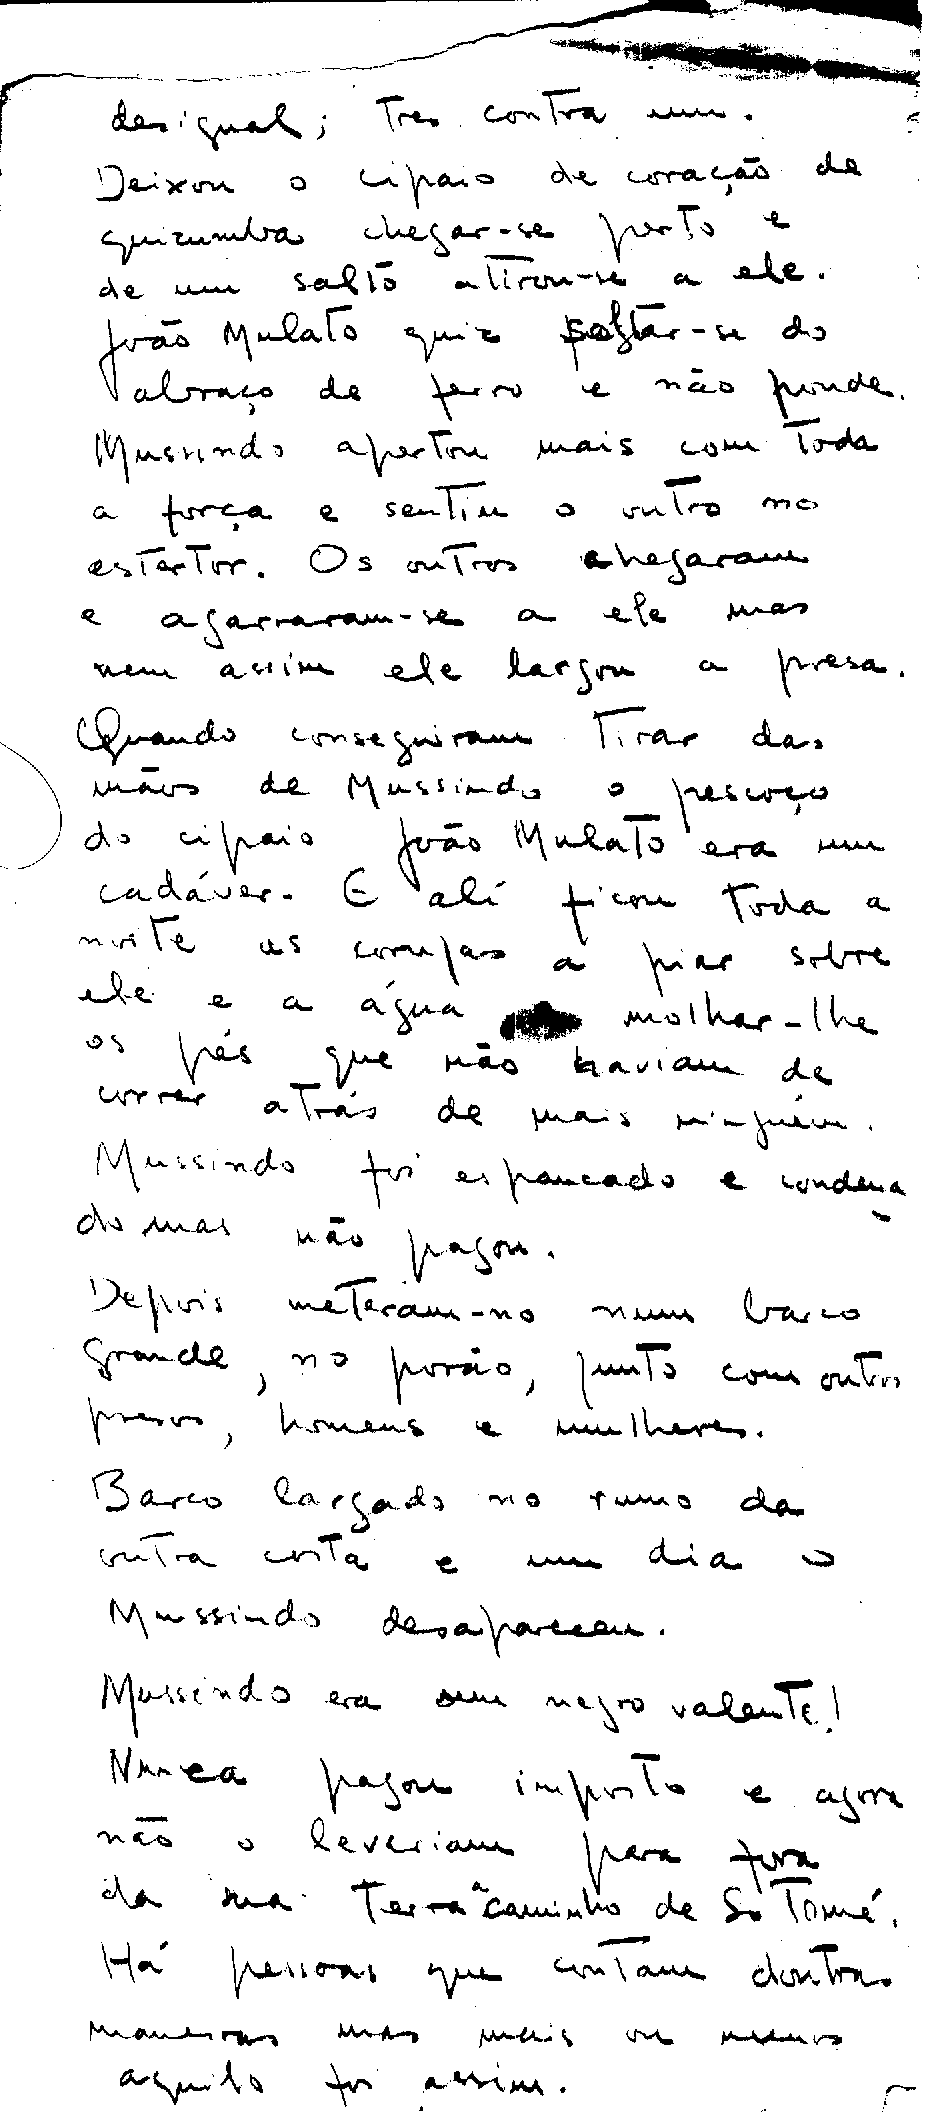 desigual; tres contra um.
Deixou o cipaio de coração de
quizumba chegar-se perto e
de um salto atirou-se a ele.
João Mulato quiz soltar-se do
abraço de ferro e não poude.
Mussindo apertou mais com toda
a força e sentiu o outro no
estertor. Os outros chegaram
e agarraram-se a ele mas
nem assim ele largou a presa.
Quando conseguiram tirar das
mãos de Mussindo o pescoço
do cipaio João Mulato era um
cadáver. E ali ficou toda a
noite as corujas a piar sobre
ele e a água molhar-lhe
os pés que não haviam de
correr atrás de mais ninguém.
Mussindo foi espancado e condena
do mas não pagou.
Depois meteram-no num barco
grande, no porão, junto com outros
presos, homens e mulheres.
Barco largado no rumo da
outra costa e um dia o
Mussindo desapareceu.
Mussindo era um negro valente!
Nunca pagou imposto e agora
não o levariam para fora
da sua terra a caminho de S. Tomé.
Há pessoas que contam doutras
maneiras mas mais ou menos
aquilo foi assim.